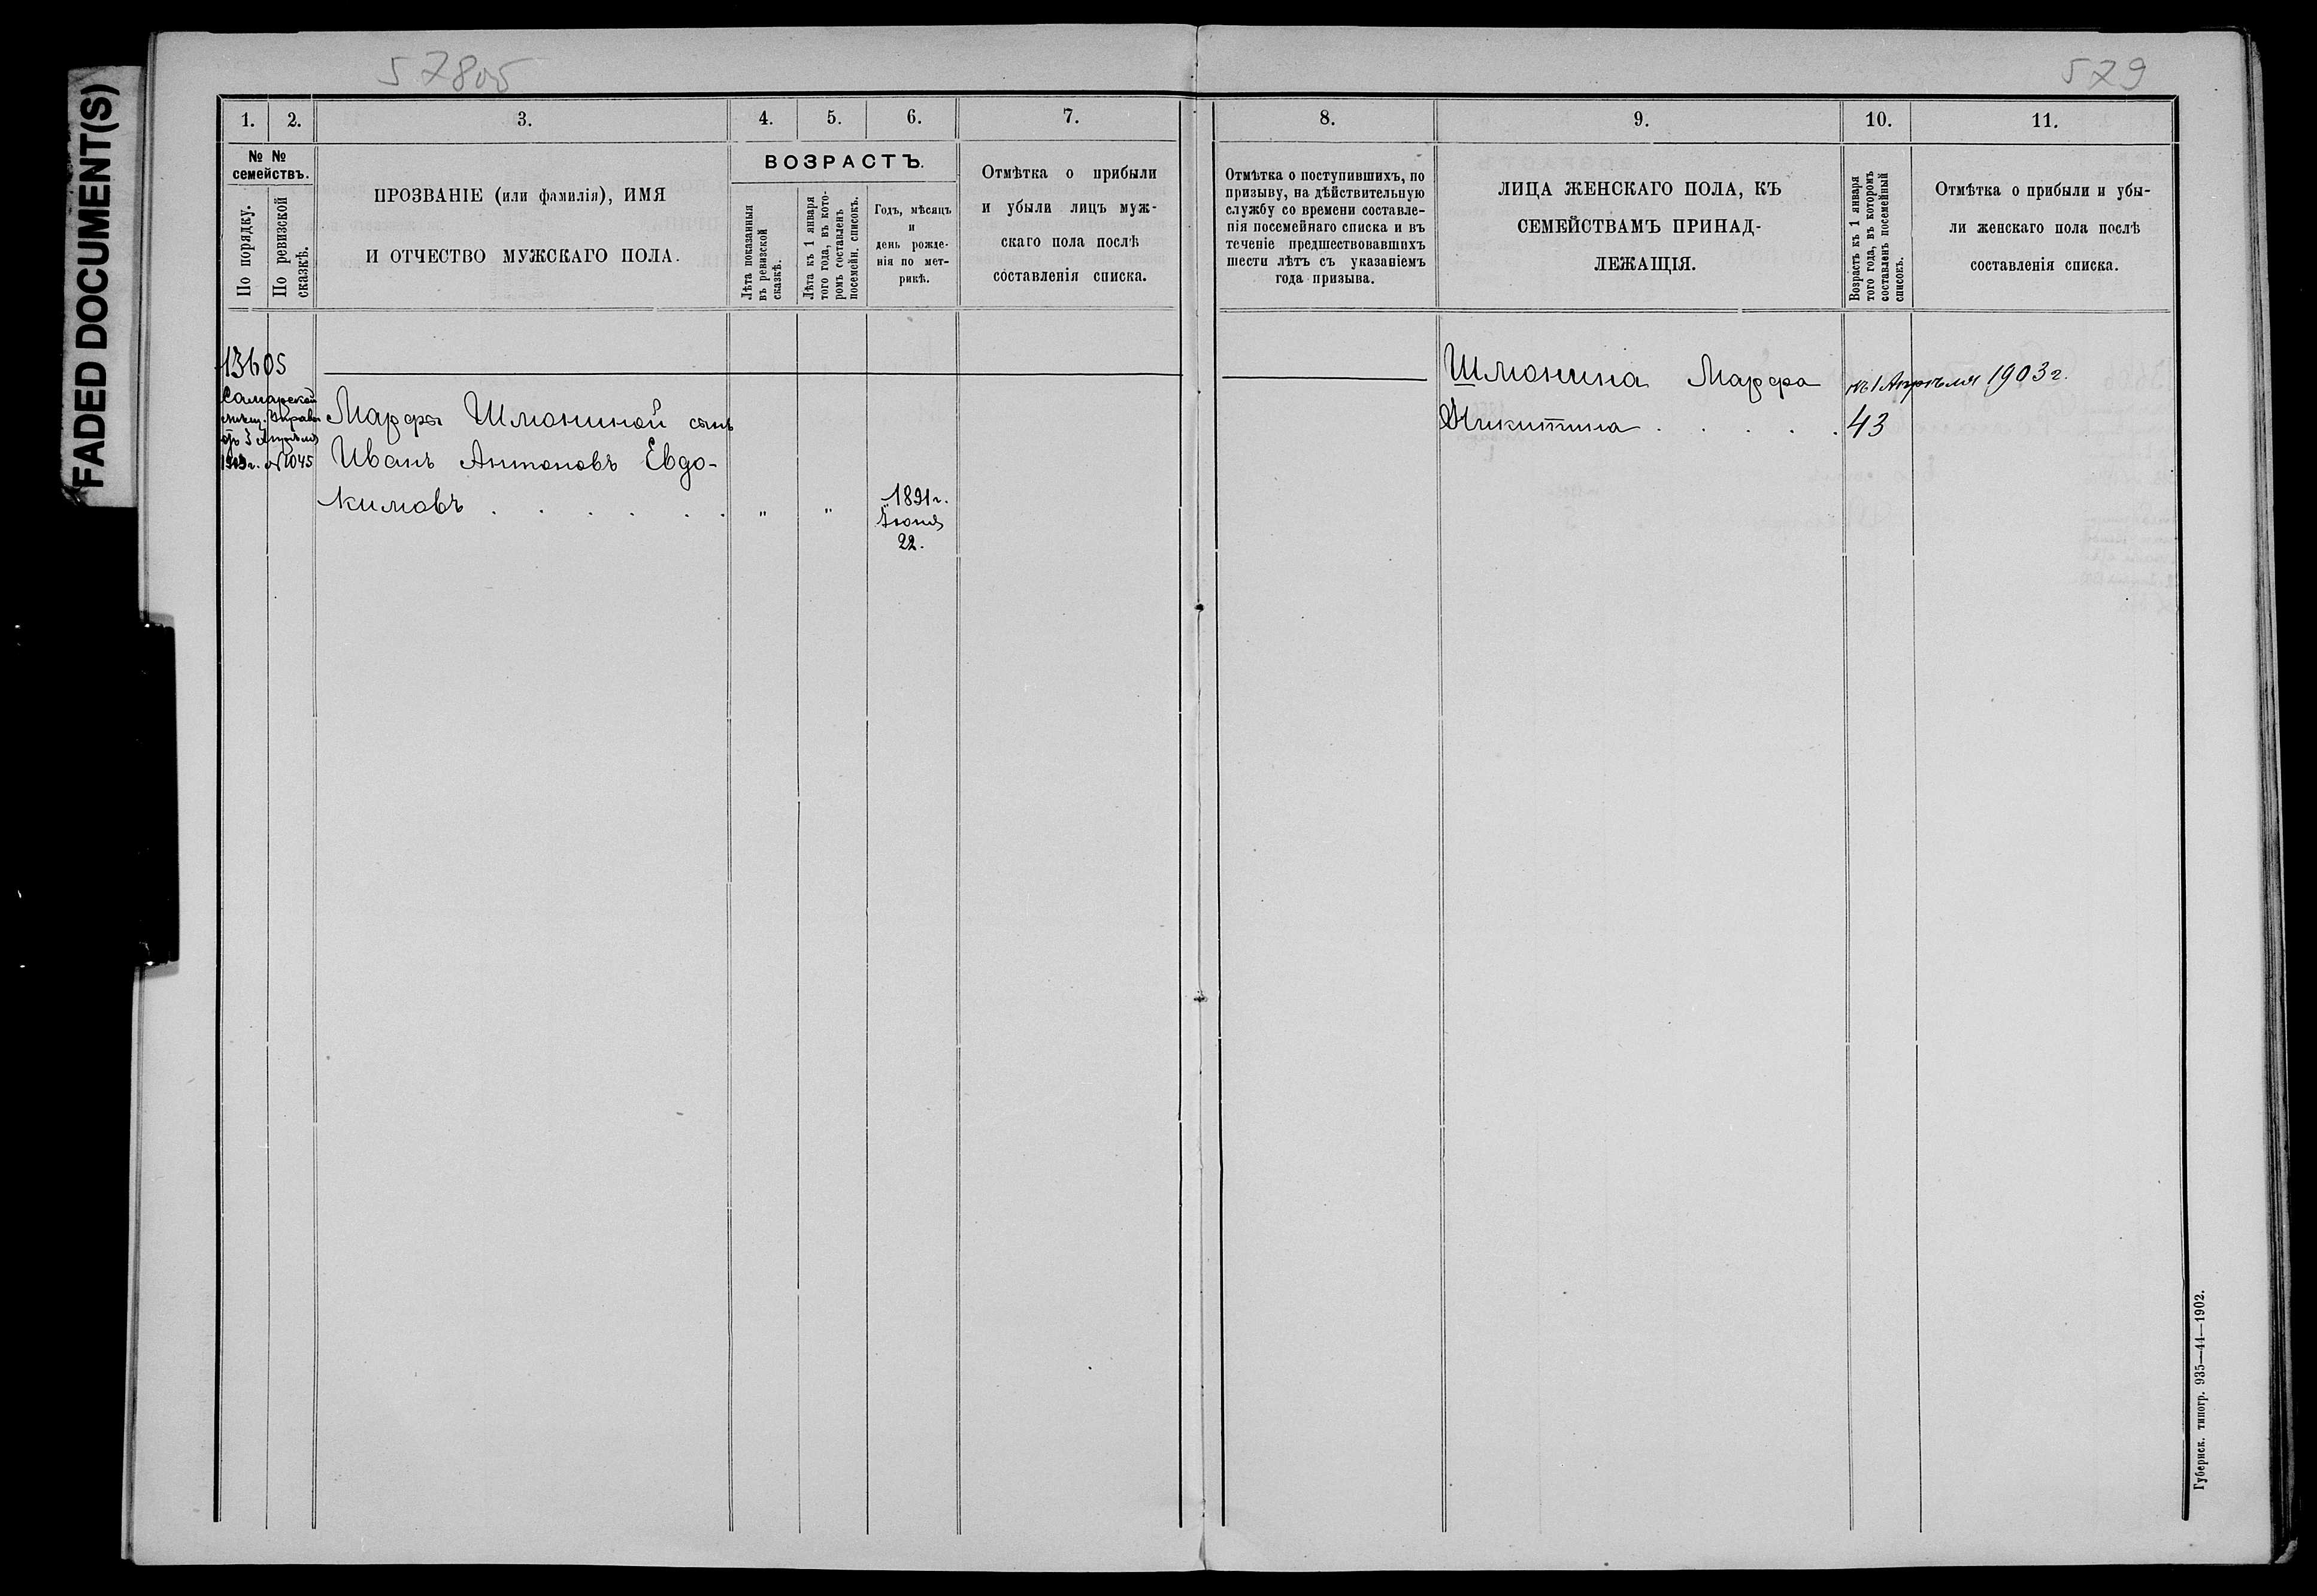 FADED DOCUMENT(S)
578об
579
1. 2. 3. 4. 5. 6. 7.
№ №
семействъ.
По порядку.
По ревизской
сказкѣ.
ПРОЗВАНІЕ (или фамилія), ИМЯ
И ОТЧЕСТВО МУЖСКАГО ПОЛА.
ВОЗРАСТЪ.
Лѣта показанныя
въ ревизской
сказкѣ.
Лѣта къ 1 января
того года, въ кото-
ромъ составленъ
посемейн. списокъ.
Годъ, мѣсяцъ
и
день рожде-
нія по мет-
рикѣ.
Отмѣтка о прибыли
и убыли лицъ муж-
скаго пола послѣ
составленія списка.
13605
Самарской
мѣщ. Управы
отъ 3 Апрѣля
1903 г. №1045
Марфы Шмониной сынъ
Иванъ Антоновъ Евдо-
кимовъ . . . . . . „ „
1891 г.
Іюня
22.
8. 9. 10. 11.
Отмѣтка о поступившихъ, по
призыву, на дѣйствительную
службу со времени составле-
нія посемейнаго списка и въ
теченіе предшествовавшихъ
шести лѣтъ съ указаніемъ
года призыва.
ЛИЦА ЖЕНСКАГО ПОЛА, КЪ
СЕМЕЙСТВАМЪ ПРИНАД-
ЛЕЖАЩІЯ.
Возрастъ къ 1 января
того года, въ которомъ
составленъ посемейный
списокъ.
Отмѣтка о прибыли и убы-
ли женскаго пола послѣ
составленія списка.
Шмонина Марфа къ 1 Апрѣля 1903 г.
Никитина . . . . . 43
Губернск. типогр. 935—44—1902.